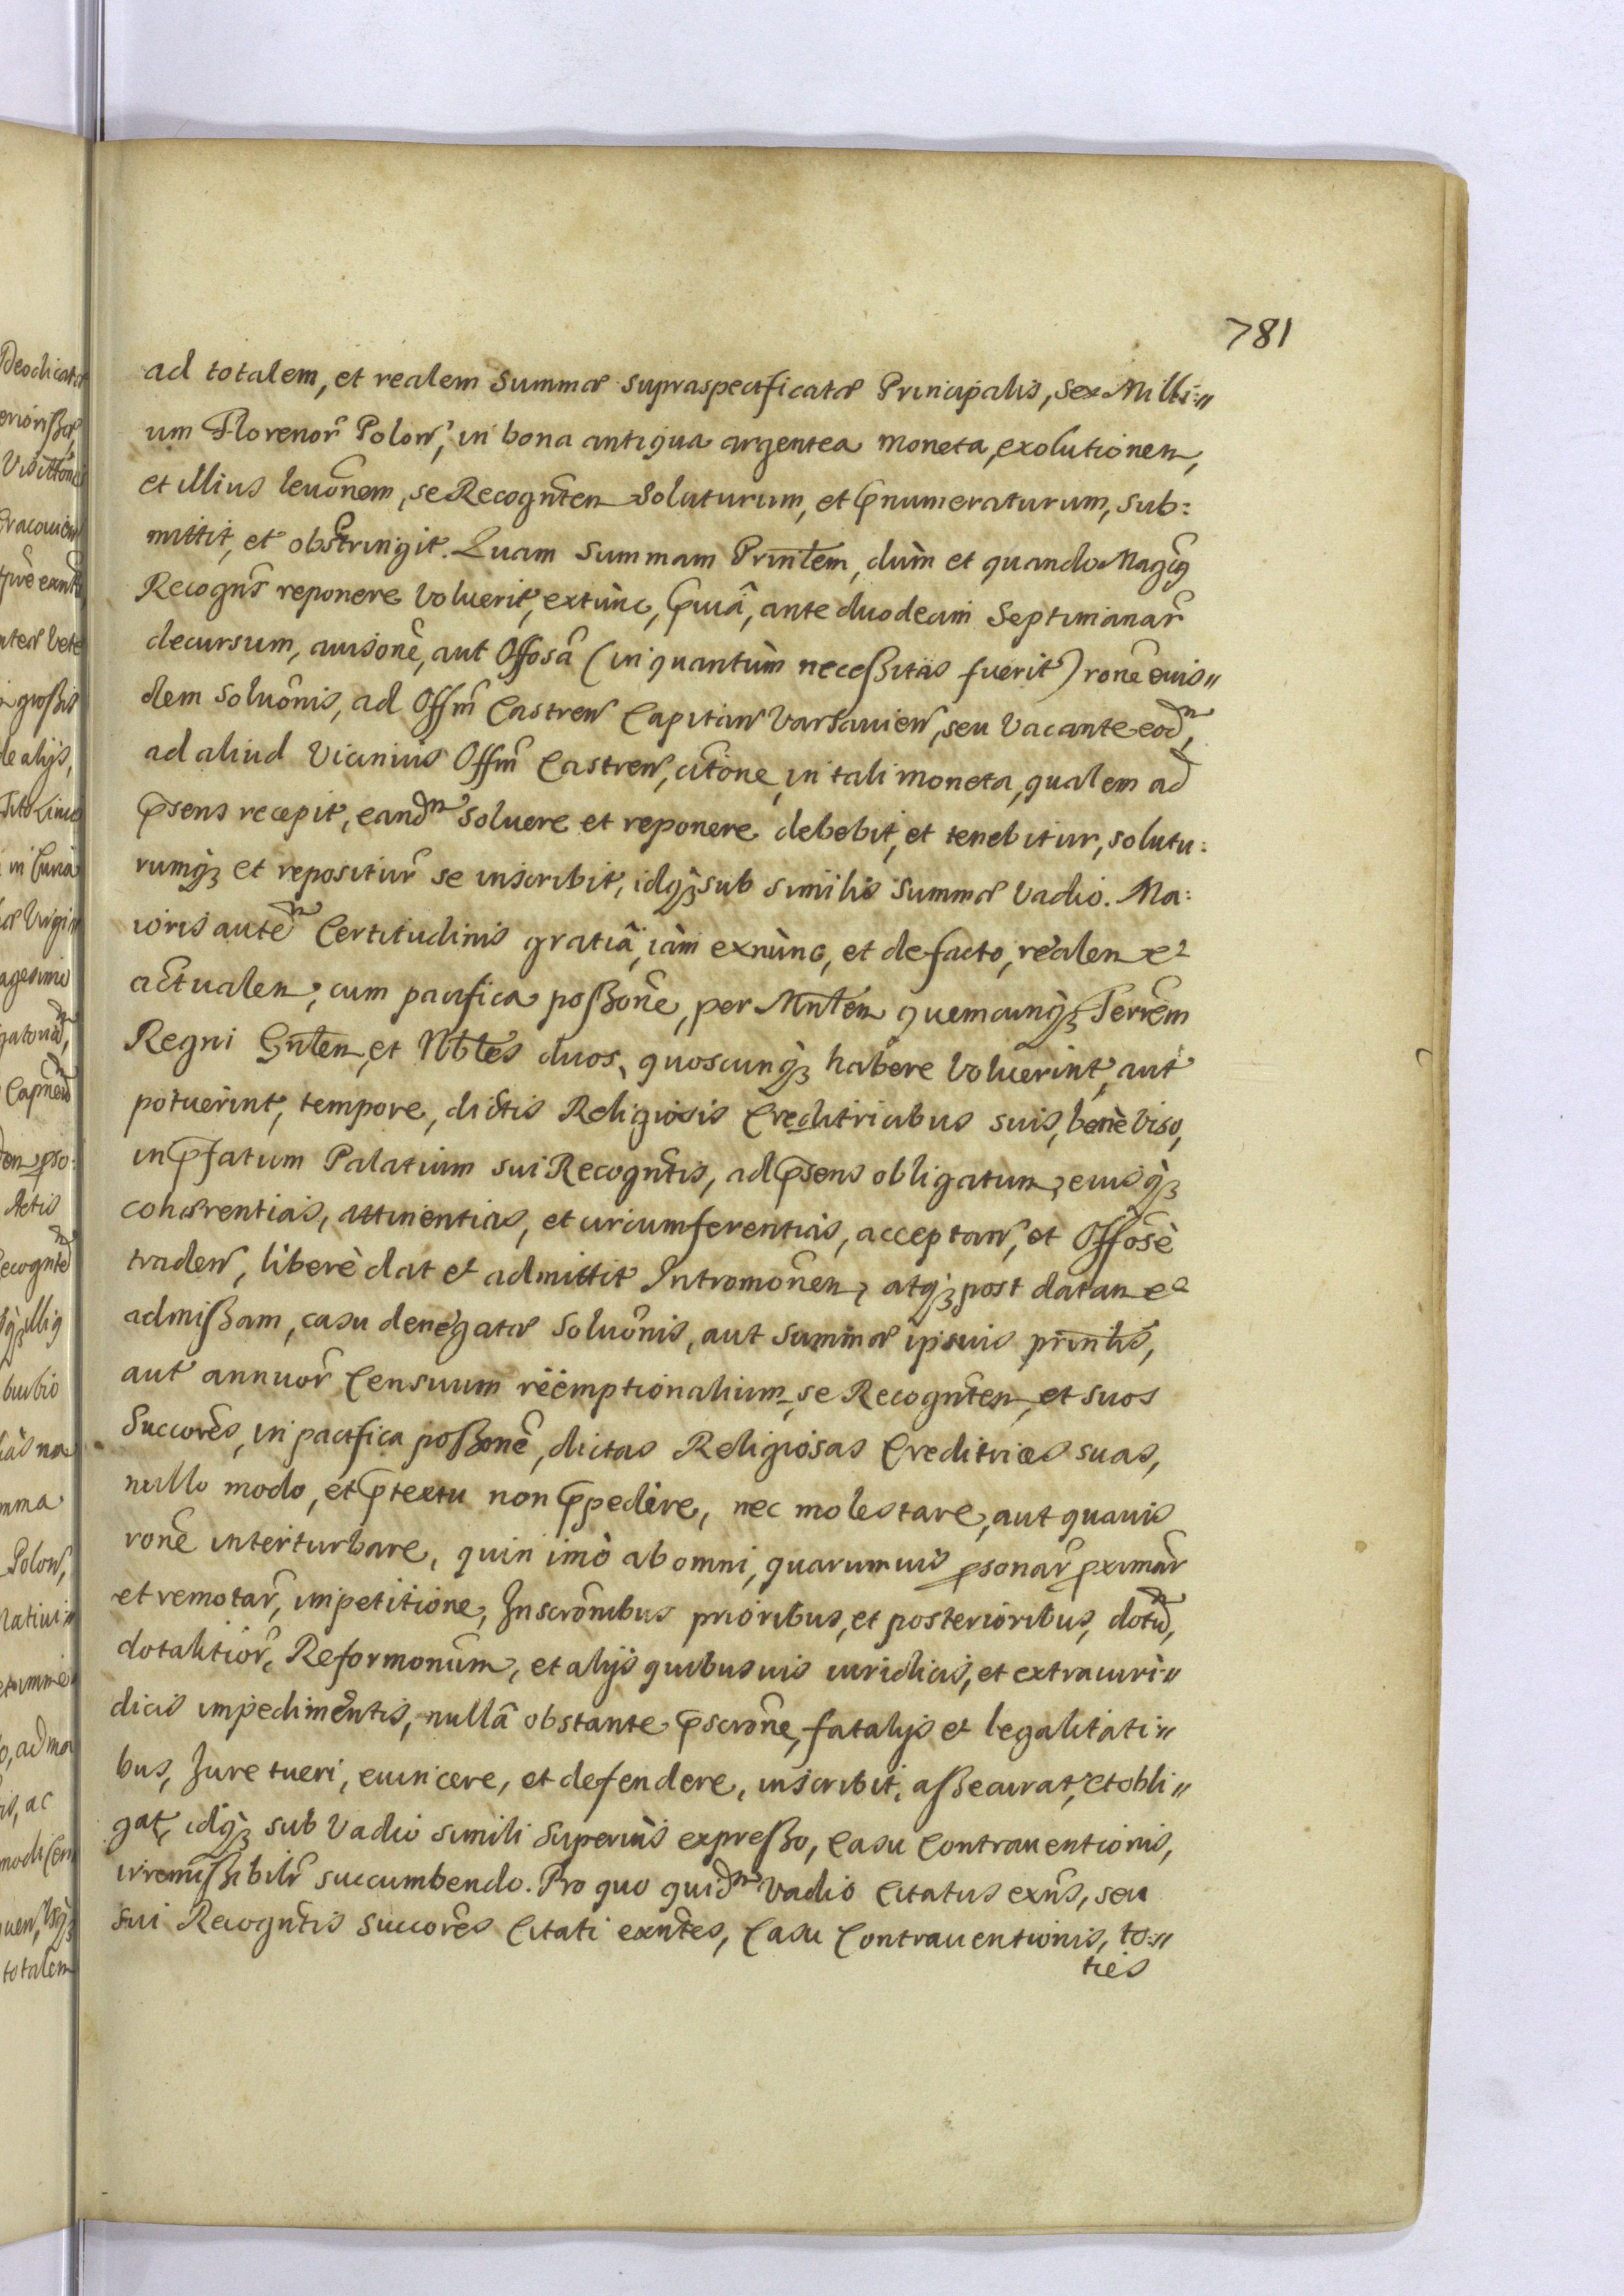 781
ad totalem, et realem Summæ supraspecificatæ Principalis, sex Milli=
um Florenor̃ Polon̄, in bona antiqua argentea moneta, exolutionem,
et illius levõnem, se Recogñtem soluturum, et p̃numeraturum, sub:
mittit, et obstringit. Quam summam Prinlem̃, dùm et quando Magcg
Recogñs reponere Voluerit, extùnc, p̃uiâ, ante duodecim Septimanar̃
decursum, auisonẽ, aut Offosã (in quantùm necessitas fuerit) ronẽ euis=
dem Soluõnis, ad Offm̃ Castren̄ Capitan̄ Varsauien̄, seu Vacante eod̃m,
ad aliud Vicinius Offm̃ Castren̄, citõne, in tali moneta, qualem ad
p̃sens recepit, eand̃m soluere et reponere debebit, et tenebitur, solutu:
rumq̀ꝫ et repositur̃ se inscribit, idq̀ꝫ sub similis Summæ Vadio. Ma:
ioris autẽm Certitudinis gratiâ, iàm exnùnc, et de facto, realem et
actualem, cum pacifica possonẽ, per Mnlem̃ quemcunq̀ꝫ Terrẽm
Regni Gnlem̃, et Nbles̃ duos, quoscunq̀ꝫ habere Voluerint, aut
potuerint, tempore, dictis Religiosis Creditricibus suis, benè viso,
in p̃fatum Palatium sui Recogñtis, ad p̃sens obligatum, eiusq̀ꝫ
cohærentias, attinentias, et circumferentias, acceptan̄, et Offosẽ̀
traden̄, liberè dat et admittit Intromonẽm, atq̀ꝫ post datam et
admissam, casu denegatæ Soluõnis, aut Summæ ipsius prinlis̃,
aut annuor̃ Censuum rëëmptionalium, se Recogñtem, et suos
Succorẽs, in pacifica possonẽ, dictas Religiosas Creditrices suas,
nullo modo, et p̃textu non p̃pedire, nec molestare, aut quauis
ronẽ interturbare, quin imò ab omni, quarumuis ꝑsonar̃ ꝓximar̃
et remotar̃, impetitione, Inscrõnibus prioribus, et posterioribus, dotũm,
dotalitior̃, Reformonũm, et alijs quibusuis iuridicis, et extraiuri=
dicis impedimentis, nullâ obstante p̃scrõne, fatalijs et legalitati=
bus, Iure tueri, euincere, et defendere, inscribit, assecurat, et obli=
gat, idq̀ꝫ sub Vadio simili Superiùs expresso, Casu Contrauentionis,
irremissibilr̃ succumbendo. Pro quo quid̃m Vadio Citatus exñs, seu
sui Recogñtis Succorẽs Citati exñtes, Casu Contrauentionis, to=
ties